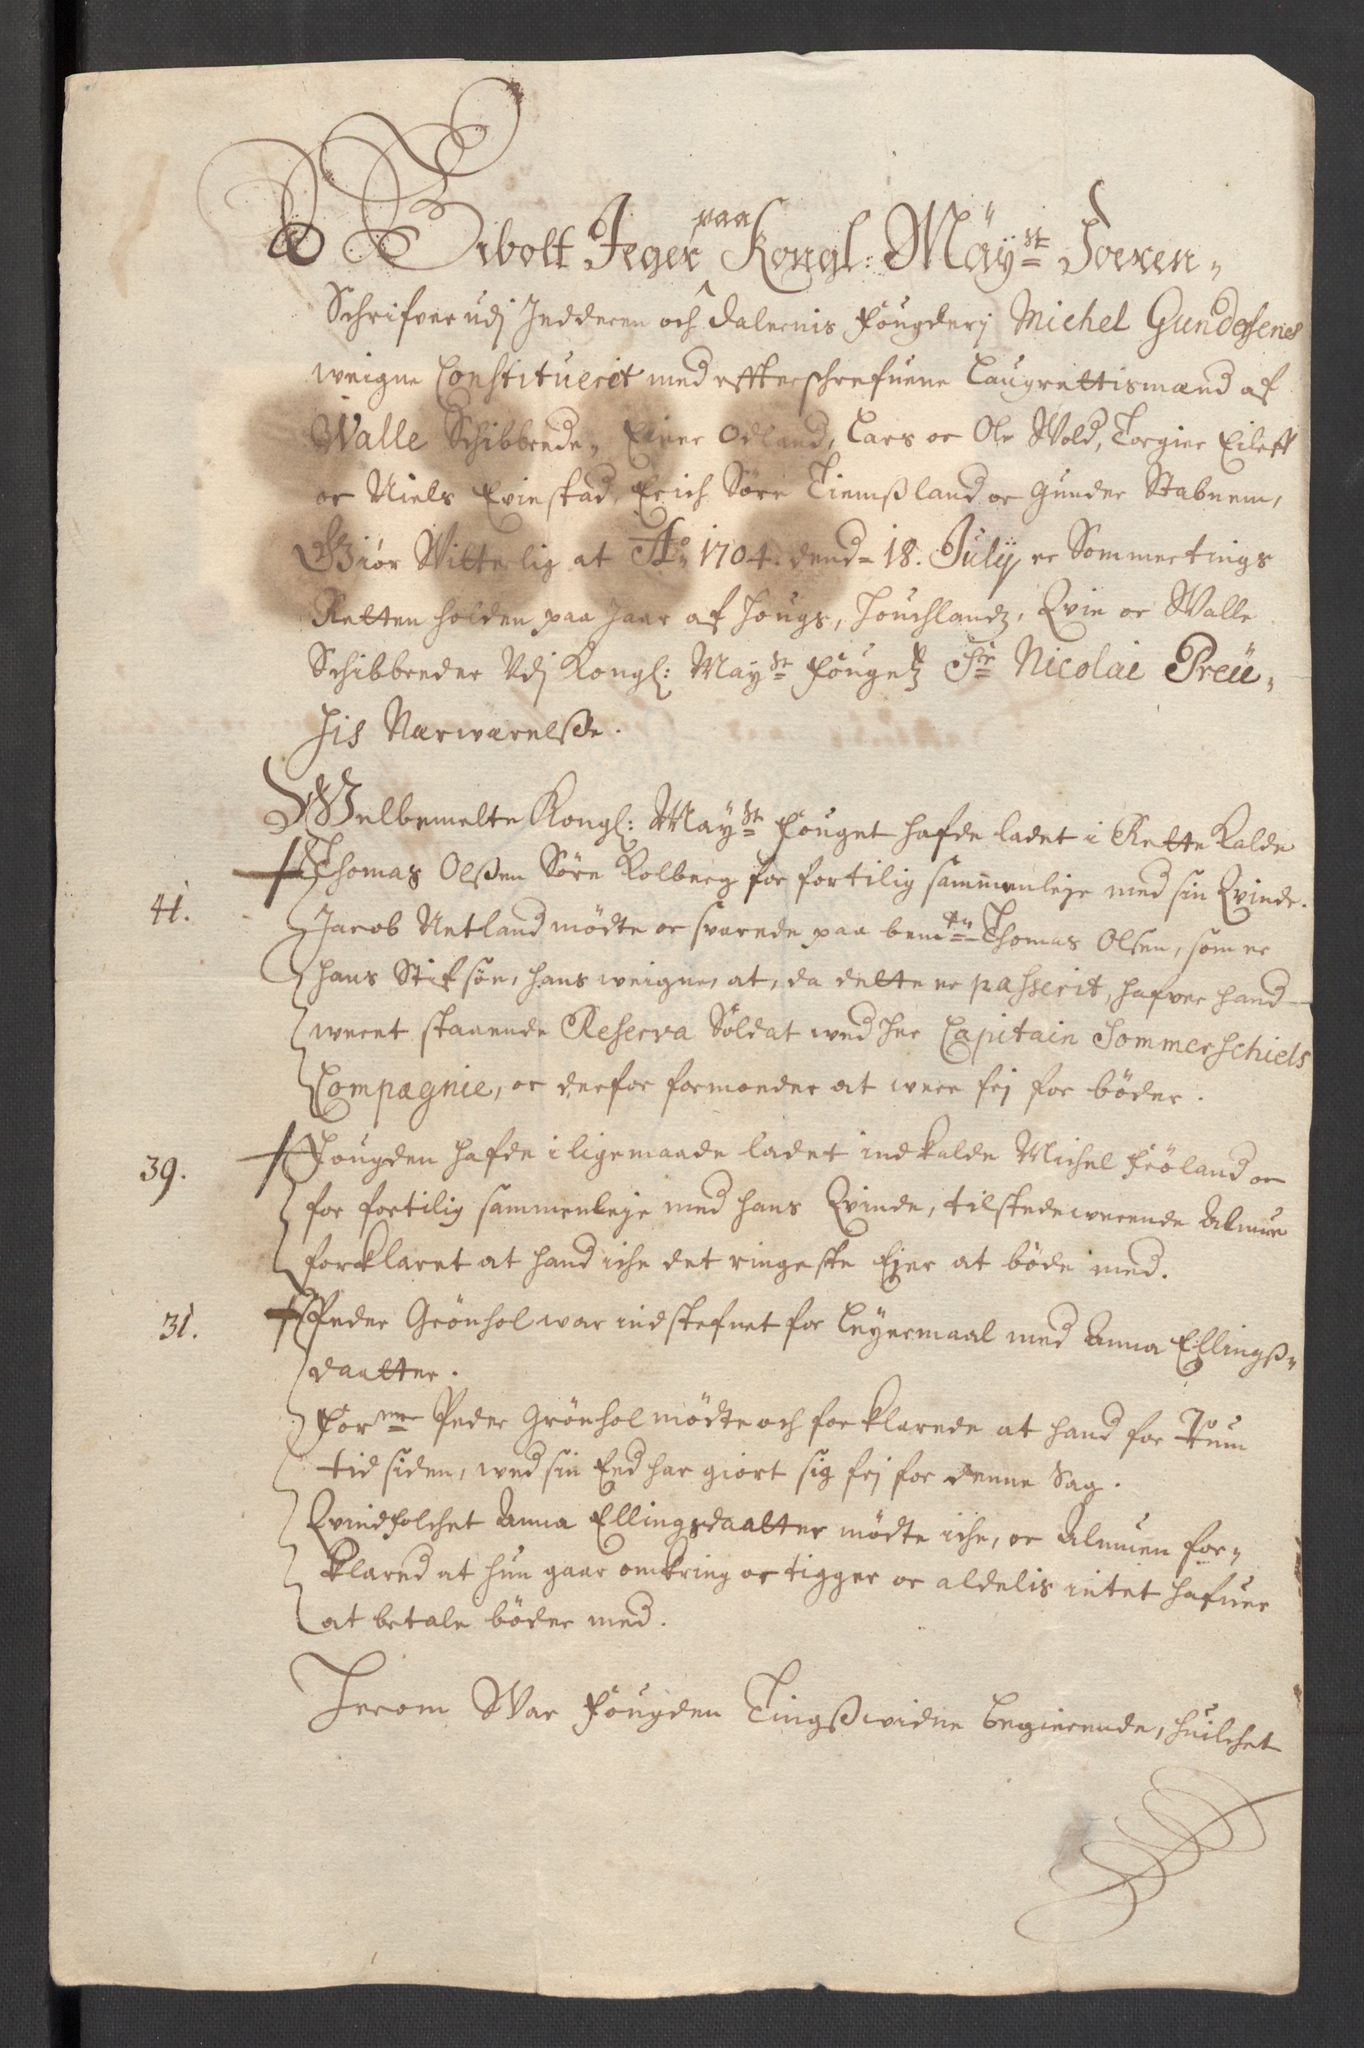 Sibolt Jeger paa Kongl: Mäy:st Soeren-
Schrifver udj Jedderen och Dalernis fougderj Michel Gundersens
weigne Constituerit med effterschrefuene Laugrettismænd af
Walle Schibbrede, Einer Odland, Lars oc Ole Wold, Torgier Eileff
oc Niels Evinstad, Erich Söre Tiemßland oc Gunder Stabnem,
Giör Witterlig at Ao 1704. dend 18. Julij er Sommertings
Retten holden paa Haar af Hougs, Houchlandz, Qvie oc Walle
Schibbreder Udj Kongl: May:st fougetz Hr Nicolai Preü-
sis Nærwærelße.
Welbemelte Kongl: May:st fouget hafde ladet i Rette kalde
41. Thomas Olßen Söre Kolberg for fortilig sammenleje med sin Qvinde.
Jacob Netland mødte oc svarede paa bemte Thomas Olsen, som er
hans Stifsøn, hans weigne, at, da dette er passerit, hafver hand
weret staaende Reserva Soldat wed Her Capitain Sommerschiels
Compagnie, oc derfor formoeder at were frj for bøder.
39. Fougden hafde i ligemaade ladet indkalde Michel Frøland oc
for fortilig sammenleje med hans Qvinde, tilstedewerende Almue
forklaret at hand iche det ringeste Ejer at bøde med.
31. Peder Grönhol war indstefnet for Leyermaal med Anna Ellingß-
daatter.
For:ne Peder Grönhol mødte och forklarede at hand for Rum
tid siden, wed sin Eed har giort sig frj for denne Sag.
Qvindfolchet Anna Ellingsdaatter mødte iche, oc Almuen for-
klared at hun gaar omkring oc tigger oc aldelis intet hafuer
at betale bøder med.
Herom War fougden Tingßwidne begierende, huilchet